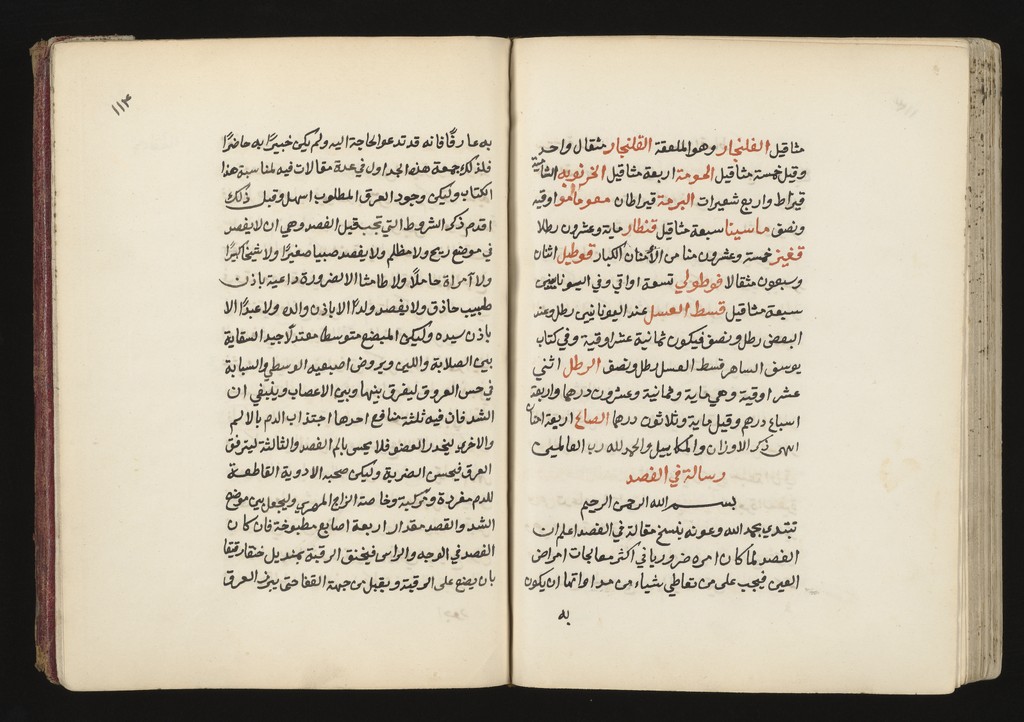 مثاقيل الفلنجار وهو الملعقة الفلنجار مثقال واحد
وقيل خمسة مثاقيل الحومة اربعة مثاقيل الخرنوبه الشامية
قيراط واربع شعيرات البرمة قيراطان اوقيه
ونصف ماسيينا سبعة مثاقيل قنطار ماية وعشرون رطلا
قفيز خمسة وعشرون منا من الأمنان الكبار قوطيل اثنان
وسبعون مثقالا قوطولي تسعة اواقي وفي اليونانيين
سبعة مثاقيل قسط العسل عند اليونانيين رطل وعند
البعض رطل ونصف فيكون ثمانية عشر اوقية وفي كتاب
يوسف الساهر قسط العسل رطل ونصف الرطل اثني
عشر اوقية وهي ماية وثمانية وعشرون درهما واربعة
اسباع درهم وقيل ماية وثلاثون درهما الصاع اربعة امنان
انتهى ذكر الاوزان والمكاييل والحمد لله رب العالمين
رسالة في الفصد
بسم الله الرحمن الرحيم
نبتدي بحمد الله وعونه بنسخ مقالة في الفصد اعلم ان
الفصد لما كان امره ضروريا في اكثر معالجات امراض
العين فيجب على من تعاطي شياء من مداواتها ان يكون
به
١١٣
به عارفًا فانه قد تدعو الحاجة اليه ولم يكن خبيرًا به حاضرًا
فلذلك جمعة هذه الجداول في عدة مقالات فيه لمناسبة هذا
الكتاب وليكن وجود العرق المطلوب اسهل وقبل ذلك
اقدم ذكر الشروط التي تجب قبل الفصد وهي ان لا يفصد
في موضع ريح ولا مظلم ولا يفصد صبيا صغيرًا ولا شيخا كبيرًا
ولا آمراة حاملًا ولا طامثا الا لضرورة داعية باذن
طبيب حاذق ولا يفصد ولدًا الا باذن والده ولا عبدًا الا
باذن سيده وليكن المبضع متوسطا معتدلًا جيد السقاية
بين الصلابة واللين ويروض اصبعيه الوسطى والسبابة
في جس العروق ليفرق بينها وبين الاعصاب وينبغي ان
الشد فان فيه ثلثة منافع احدها اجتذاب الدم بالالم
والاخرى ليخدر العضو فلا يحس بالم الفصد والثالثة ليترفق
العرق فيحسن الضربة وليكن صحبه الادوية القاطعة
للدم مفردة ومركبة وخاصة الزاج المصري وليجعل بين موضع
الشد والفصد مقدار اربعة اصابع مطبوخة فان كان
الفصد في الوجه والراس فيخنق الرقبة بمنديل خنقا رقيقا
بان يضع على الرقبة ويقبل من جهة القفا حتى يبرز العرق